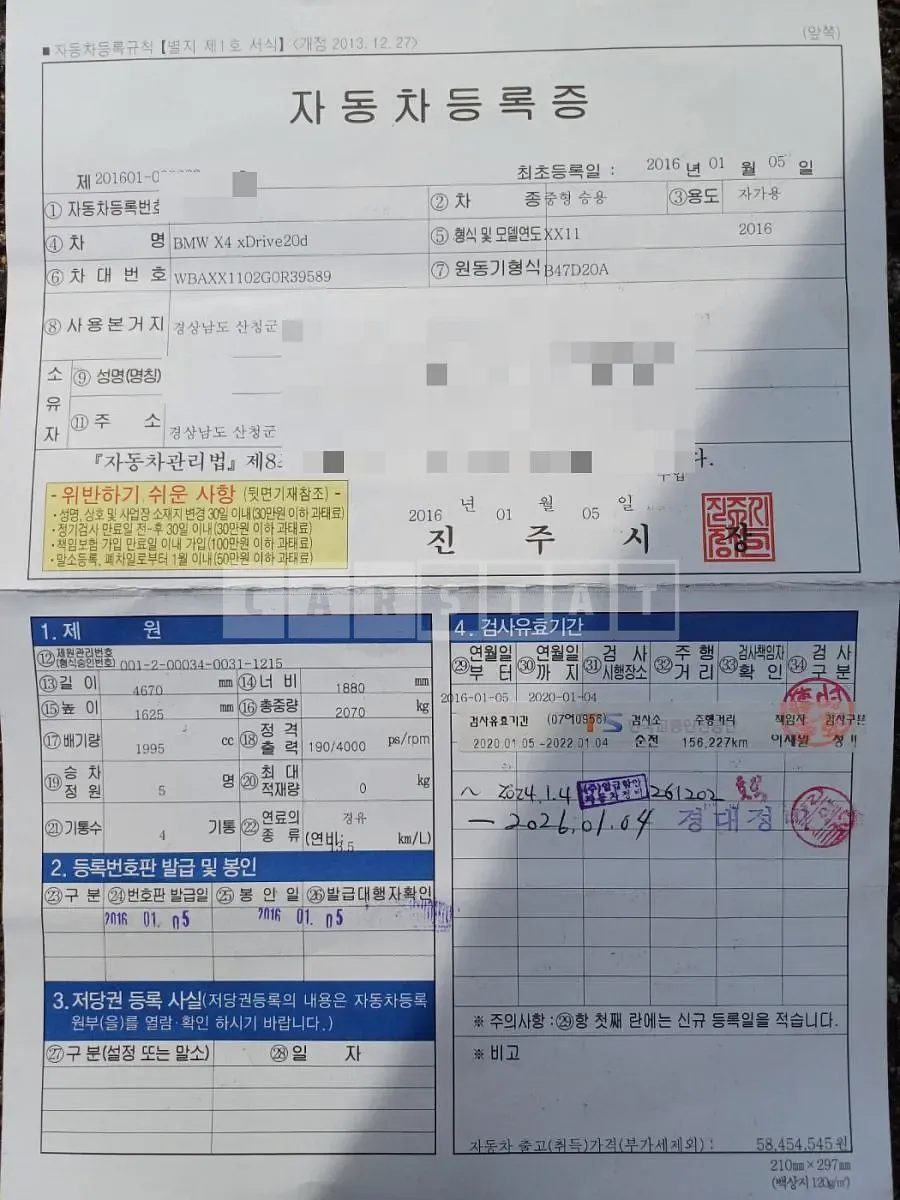 ■ 자동차등록규칙 [별지 제1호 서식] <개정 2013. 12. 27>
(앞쪽)
자동차등록증
제 201601-0
최초등록일 : 2016 년 01 월 05 일
① 자동차등록번호
② 차 종 중형 승용
③용도 자가용
④ 차 명 BMW X4 xDrive20d
⑤ 형식 및 모델연도 XX11 2016
⑥ 차 대 번 호 WBAXX1102G0R39589
⑦ 원동기형식 B47D20A
⑧ 사용본거지 경상남도 산청군
소유자
⑨ 성명(명칭)
⑪ 주 소 경상남도 산청군
『자동차관리법』 제8조
다.
- 위반하기 쉬운 사항 (뒷면기재참조) -
· 성명, 상호 및 사업장 소재지 변경 30일 이내(30만원 이하 과태료)
· 정기검사 만료일 전·후 30일 이내(30만원 이하 과태료)
· 책임보험 가입 만료일 이내 가입(100만원 이하 과태료)
· 말소등록, 폐차일로부터 1월 이내(50만원 이하 과태료)
2016 년 01 월 05 일
진 주 시 장
CARSTAT
1. 제 원
⑫ 제원관리번호 (형식승인번호) 001-2-00034-0031-1215
⑬길 이 4670 mm ⑭너 비 1880 mm
⑮높 이 1625 mm ⑯총중량 2070 kg
⑰배기량 1995 cc ⑱정 격 출 력 190/4000 ps/rpm
⑲승 차 정 원 5 명 ⑳최 대 적재량 0 kg
㉑기통수 4 기통 ㉒연료의 종 류 경유 (연비: 13.5 km/L)
2. 등록번호판 발급 및 봉인
㉓구 분 ㉔번호판 발급일 ㉕봉 인 일 ㉖발급대행자확인
2016 01. 05 2016 01. 05
3. 저당권 등록 사실(저당권등록의 내용은 자동차등록
원부(을)를 열람·확인 하시기 바랍니다.)
㉗구 분(설정 또는 말소) ㉘일 자
4. 검사유효기간
㉙연월일 부 터 ㉚연월일 까 지 ㉛검 사 시행장소 ㉜주 행 거 리 ㉝검사책임자 확 인 ㉞검 사 구 분
2016-01-05 2020-01-04
검사유효기간 (07어0956) TS 한국교통안전공단 검사소 주행거리 책임자 검사구분
2020.01.05 -2022.01.04 순천 156,227km 이재원 정기
~ 2024.1.4 261202
- 2026.01.04
※ 주의사항 : ㉙항 첫째 란에는 신규 등록일을 적습니다.
※ 비고
자동차 출고(취득)가격(부가세제외) : 58,454,545원
210㎜×297㎜
(백상지 120g/㎡)